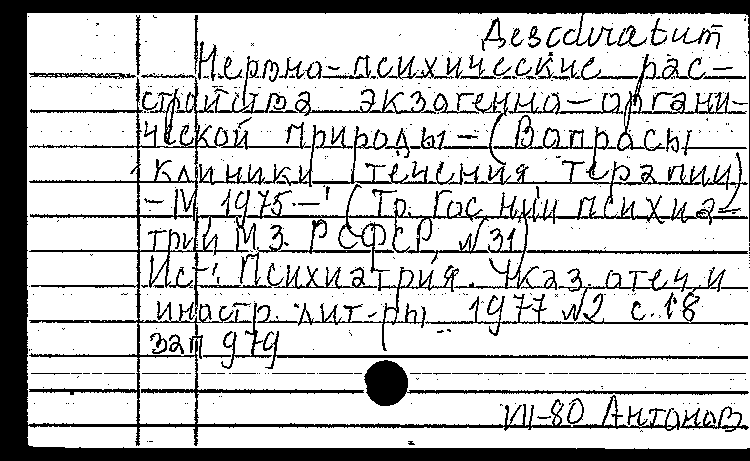 Дезidиratum
Нервно-психические рас-
стройства экзогенно-органи-
ческой природы - (Вопросы
клиники течения терапии)
- М, 1975 - (Тр. Гос НИИ психиа-
трии МЗ. РСФСР, №31)
Ист: Психиатрия. Указ. отеч. и
иностр. лит-ры 1977 №2 с. 18
зап 979
VIII-80 Антонов